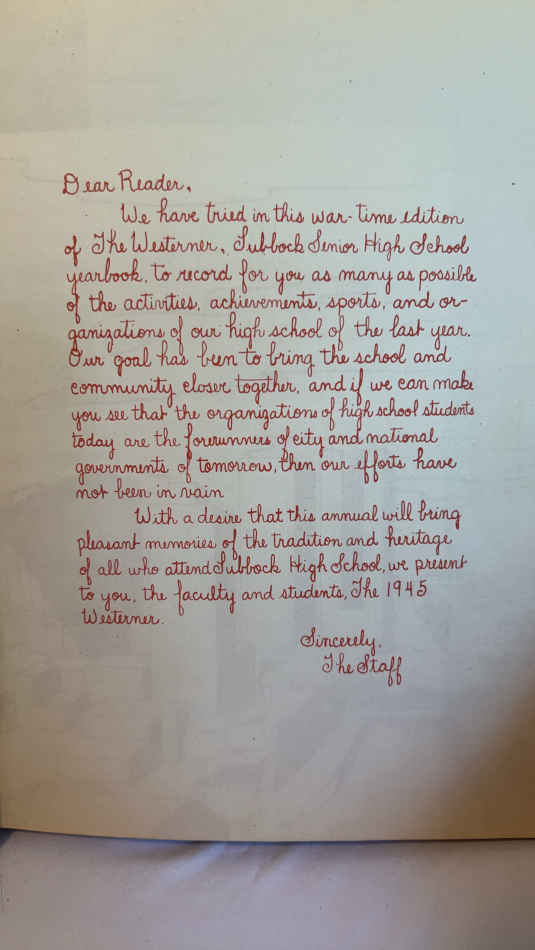 Dear Reader,
We have tried in this war-time edition
of The Westerner, Lubbock Senior High School
yearbook, to record for you as many as possible
of the activities, achievements, sports, and or-
ganizations of our high school of the last year.
Our goal has been to bring the school and
community closer together, and if we can make
you see that the organizations of high school students
today are the forerunners of city and national
governments of tomorrow, then our efforts have
not been in vain
With a desire that this annual will bring
pleasant memories of the tradition and heritage
of all who attend Lubbock High School, we present
to you, the faculty and students, The 1945
Westerner.
Sincerely,
The Staff